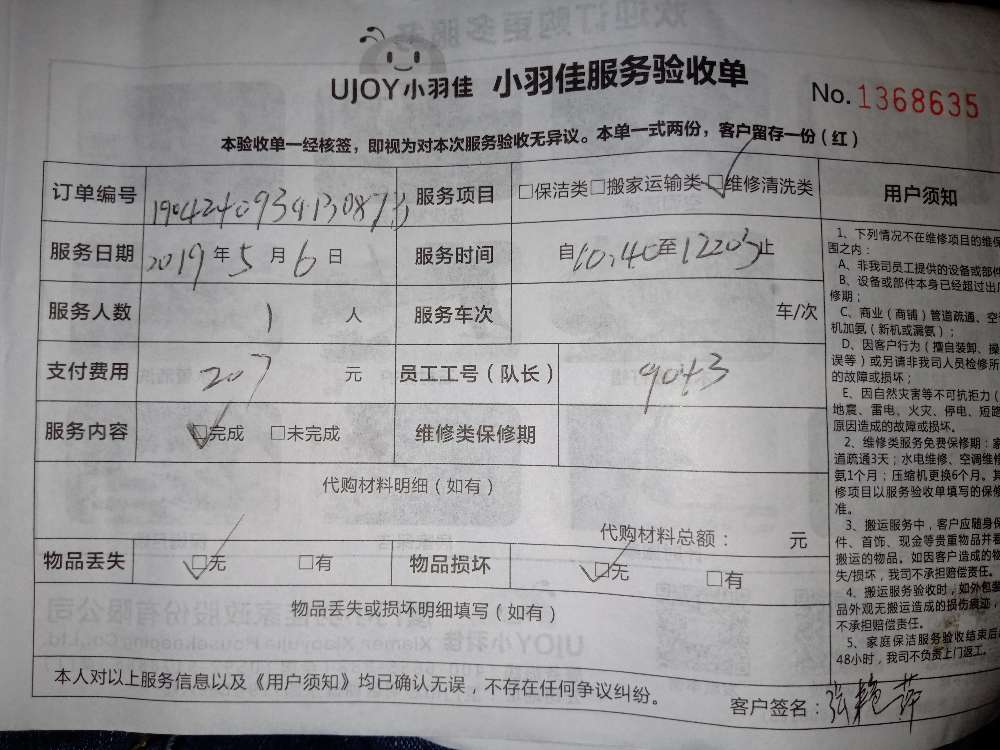 UJOY小羽佳 小羽佳服务验收单
No. 1368635
本验收单一经核签，即视为对本次服务验收无异议。本单一式两份，客户留存一份（红）
订单编号 服务项目 □保洁类□搬家运输类□维修清洗类
服务日期 2019年5月6日 服务时间 自10:40至12203止
服务人数 1 人 服务车次 车/次
支付费用 207 元 员工工号（队长） 9043
服务内容 □完成 □未完成 维修类保修期
代购材料明细（如有）
代购材料总额： 元
物品丢失 □无 □有 物品损坏 □无 □有
物品丢失或损坏明细填写（如有）
本人对以上服务信息以及《用户须知》均已确认无误，不存在任何争议纠纷。
客户签名：张艳萍
用户须知
1、下列情况不在维修项目的维保
围之内：
A、非我司员工提供的设备或部件
B、设备或部件本身已经超过出厂
修期；
C、商业（商铺）管道疏通、空
机加氨（新机或漏氨）；
D、因客户行为（擅自装卸、操
误等）或另请非我司人员检修所
的故障或损坏；
E、因自然灾害等不可抗拒力（
地震、雷电、火灾、停电、短路
原因造成的故障或损坏。
2、维修类服务免费保修期：家
道疏通3天；水电维修、空调维修
氨1个月；压缩机更换6个月。其
修项目以服务验收单填写的保修
准。
3、搬运服务中，客户应随身保
件、首饰、现金等贵重物品并看
搬运的物品。如因客户造成的物
失/损坏，我司不承担赔偿责任。
4、搬运服务验收时，如外包装
品外观无搬运造成的损伤痕迹，
不承担赔偿责任。
5、家庭保洁服务验收结束后
48小时，我司不负责上门返工。